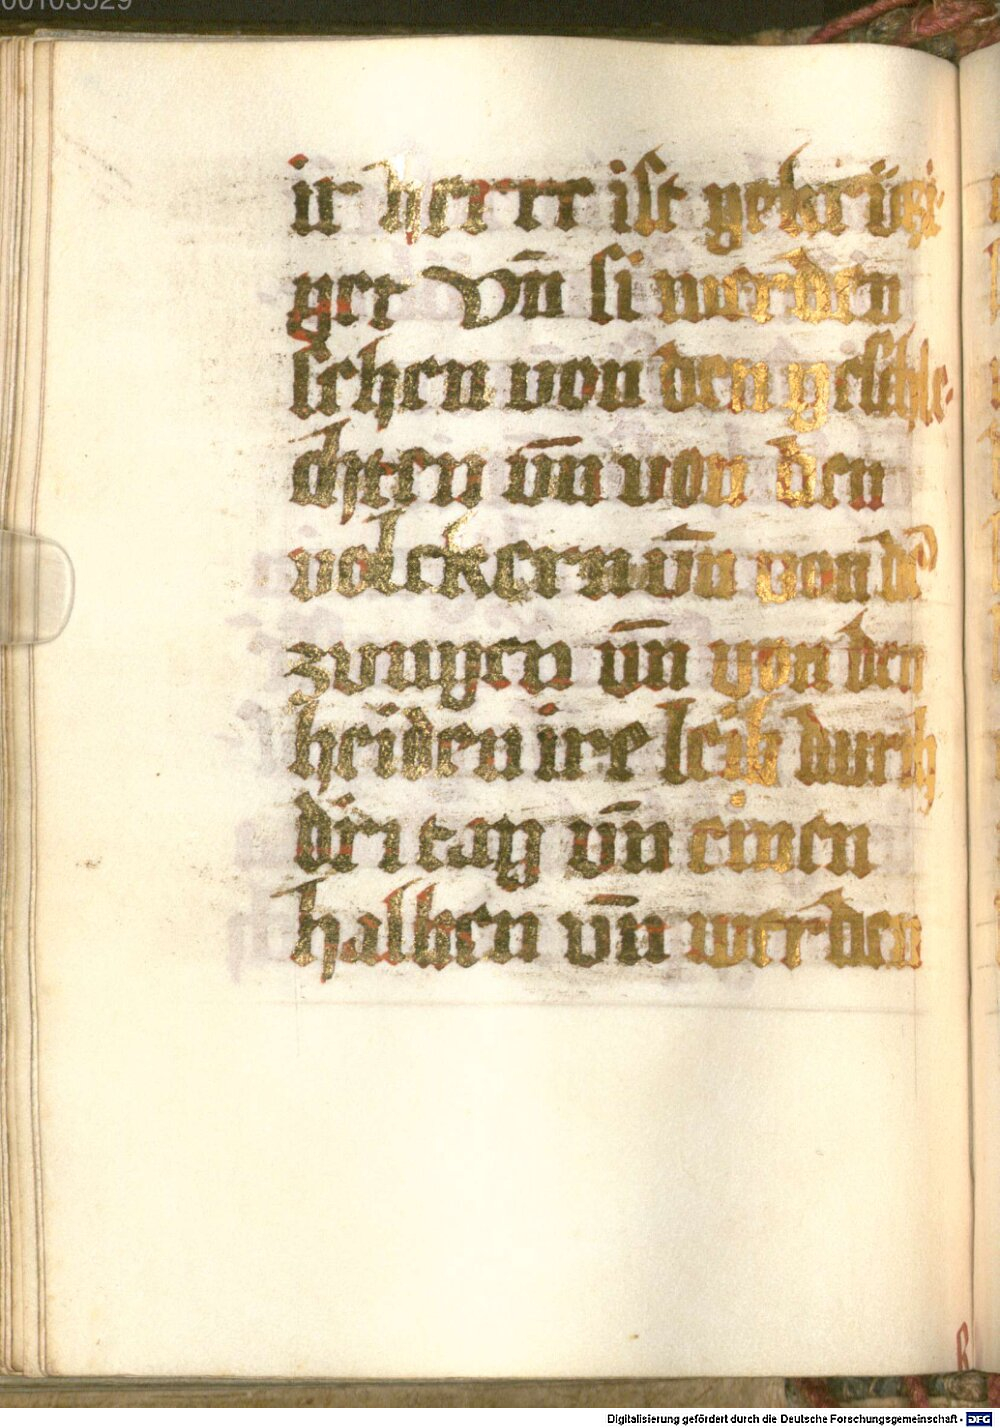 00103529
ir herre ist gekrúczi-
get Vn̄ si werden
sehen von den geschle-
chten vn̄ von den
volckern vn̄ von dē
zungen vn̄ von den
heiden ire leib durch
dri tag vn̄ einen
halben vn̄ werden
Digitalisierung gefördert durch die Deutsche Forschungsgemeinschaft - DFG